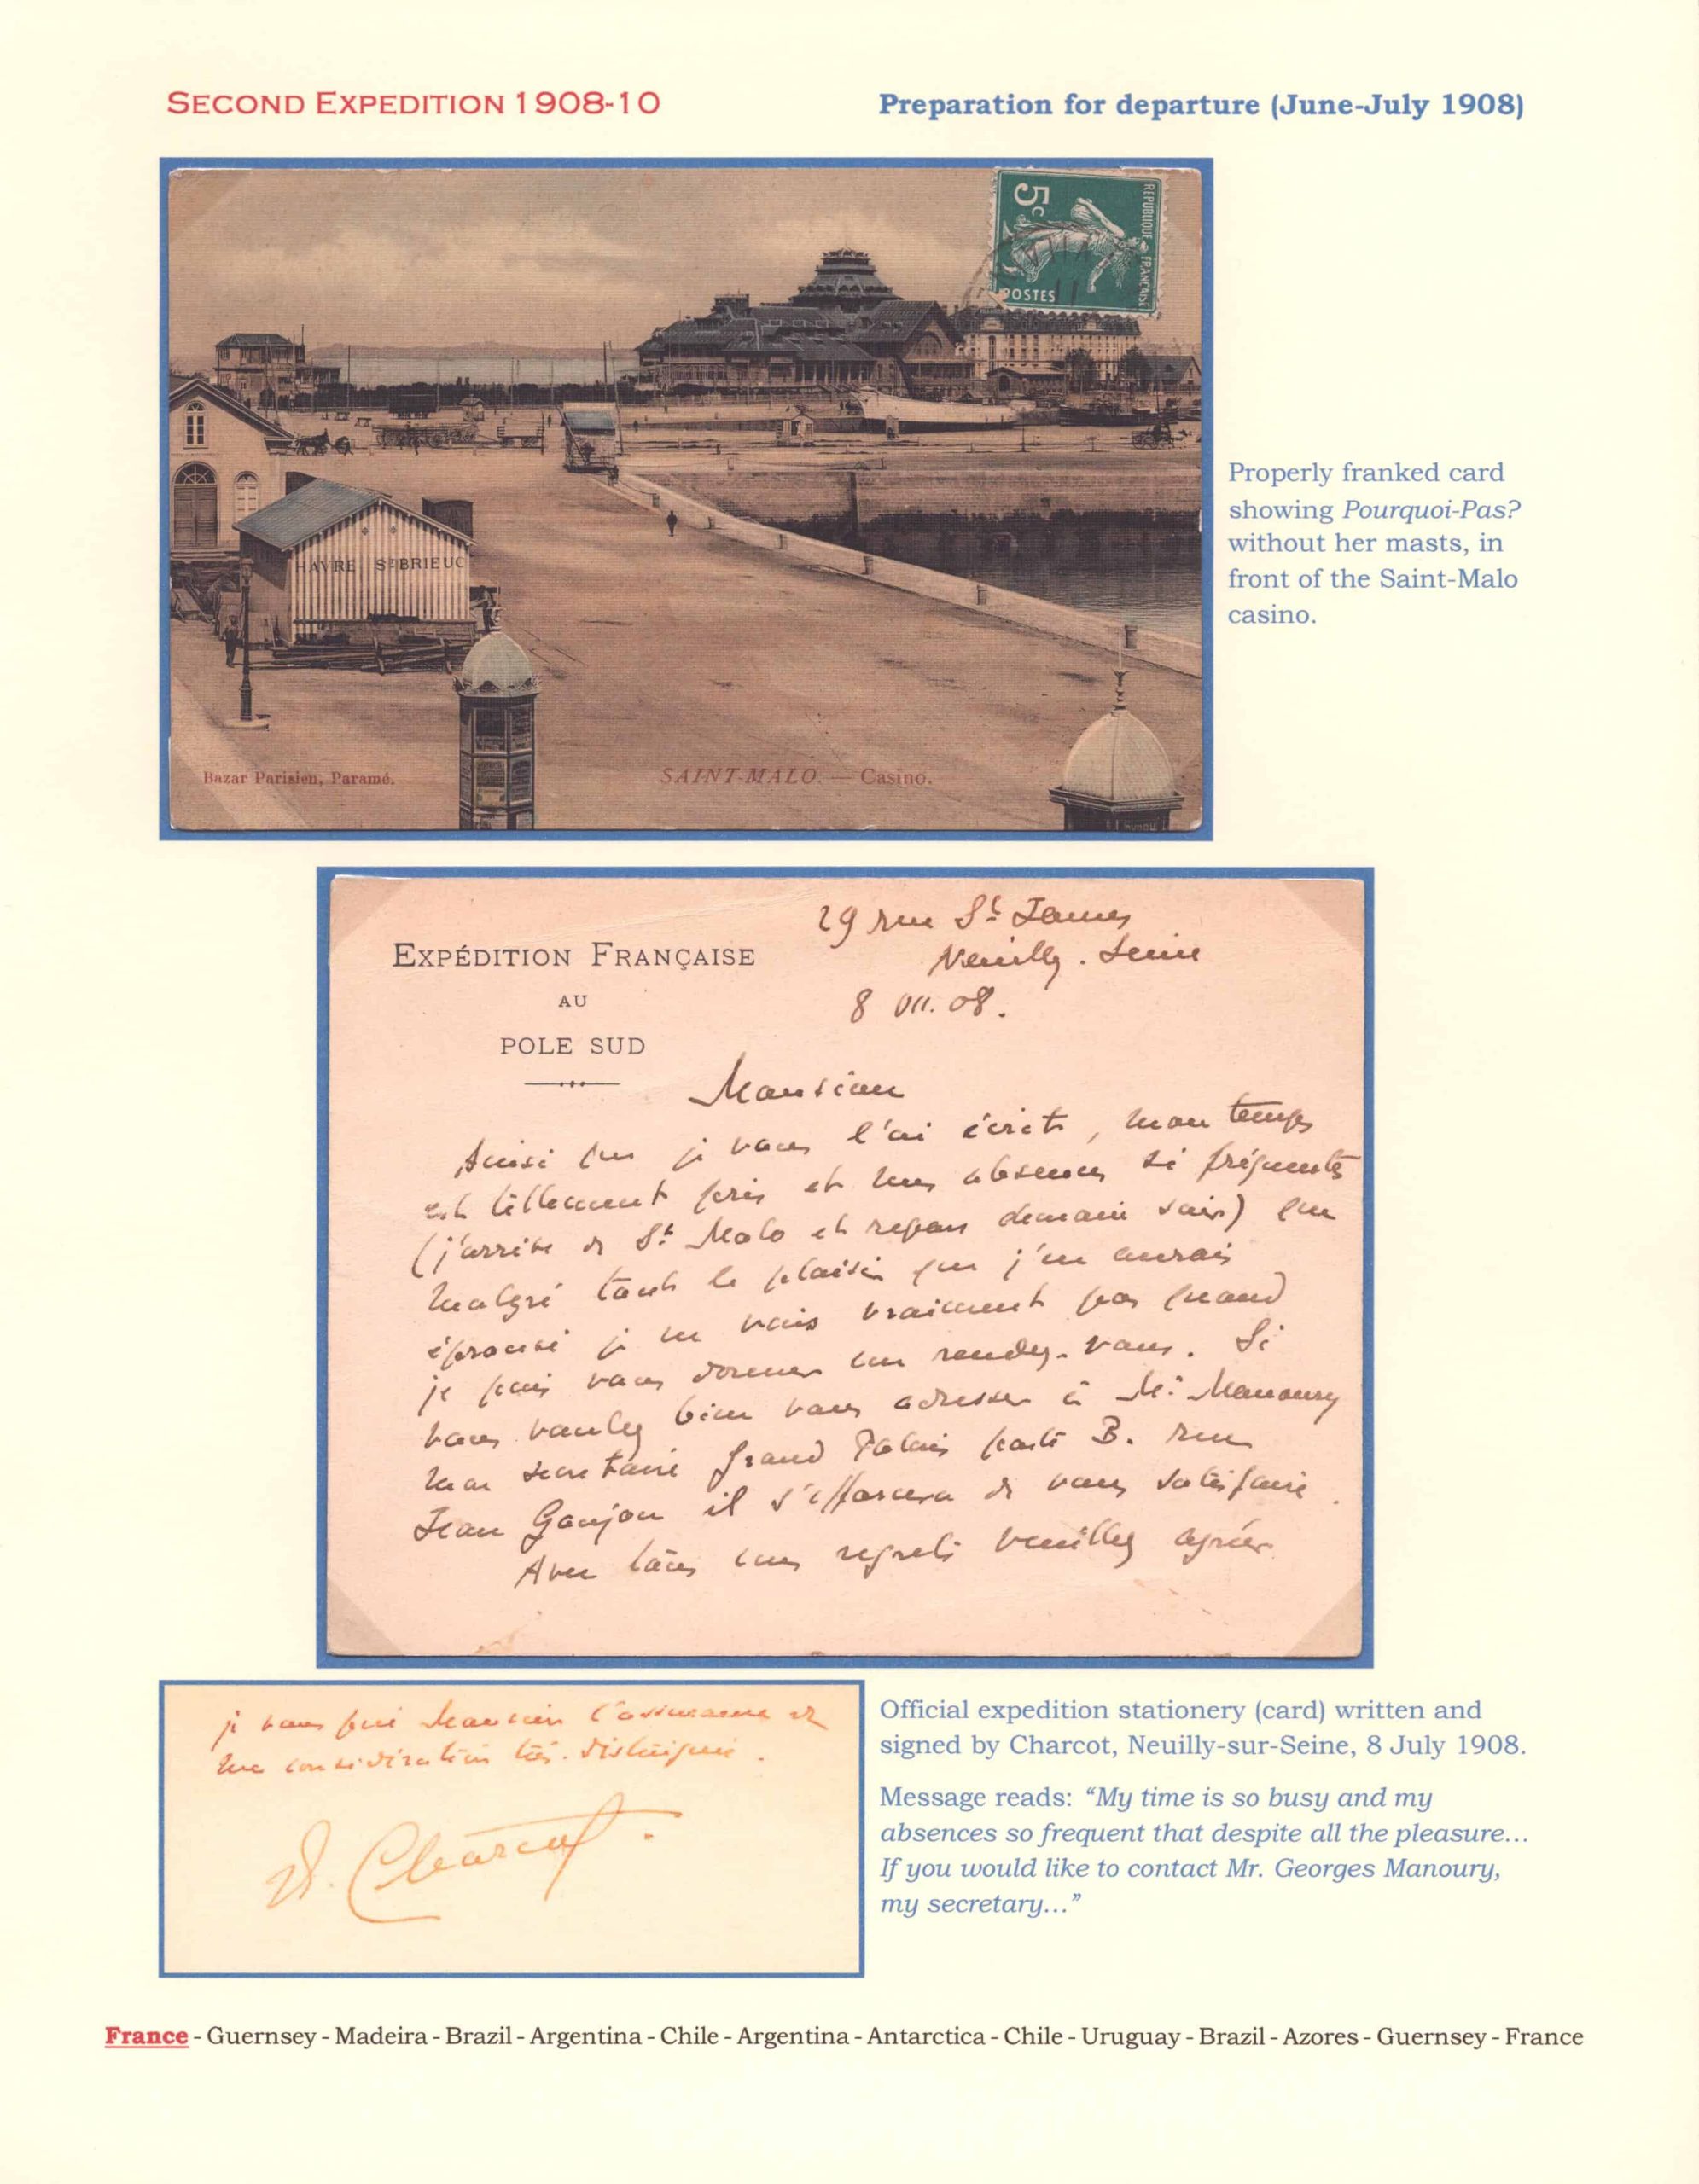 SECOND EXPEDITION 1908-10
Preparation for departure (June-July 1908)
5c
REPUBLIQUE FRANÇAISE
POSTES
HAVRE St BRIEUC
Bazar Parisien, Paramé.
SAINT-MALO. — Casino.
Properly franked card
showing Pourquoi-Pas?
without her masts, in
front of the Saint-Malo
casino.
29 rue St James
Neuilly. Seine
8 VII. 08.
EXPÉDITION FRANÇAISE
AU
POLE SUD
Monsieur
Ainsi que je vous l'ai écrit, mon temps
est tellement pris et mes absences si fréquentes
(j'arrive de St Malo et repars demain soir) que
malgré tout le plaisir que j'en aurais
éprouvé je ne vois vraiment pas quand
je puis vous donner un rendez-vous. Si
vous voulez bien vous adresser à Mr Manoury
mon secrétaire Grand Palais porte B. rue
Jean Goujon il s'efforcera de vous satisfaire.
Avec tous mes regrets veuillez agréer
je vous prie Monsieur l'assurance de
ma considération très distinguée.
J. Charcot.
Official expedition stationery (card) written and
signed by Charcot, Neuilly-sur-Seine, 8 July 1908.
Message reads: “My time is so busy and my
absences so frequent that despite all the pleasure...
If you would like to contact Mr. Georges Manoury,
my secretary...”
France - Guernsey - Madeira - Brazil - Argentina - Chile - Argentina - Antarctica - Chile - Uruguay - Brazil - Azores - Guernsey - France